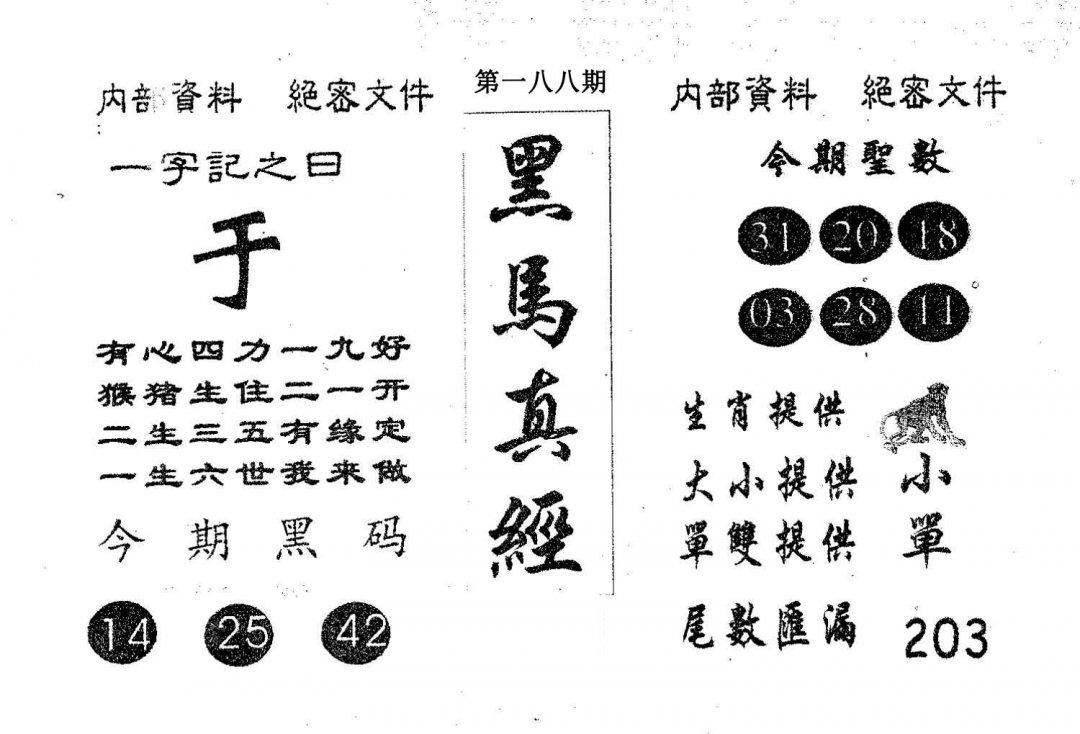 第一八八期
内部資料 絕密文件
一字記之曰
于
有心四力一九好
猴猪生住二一开
二生三五有缘定
一生六世我来做
今期黑码
14 25 42
黑馬真經
内部資料 絕密文件
今期聖數
31 20 18
03 28 11
生肖提供
大小提供 小
單雙提供 單
尾數匯漏 203